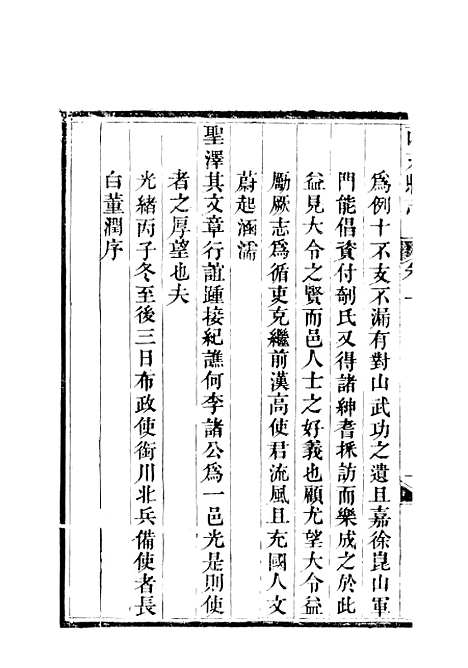 爲例十不支不漏有對山武功之遺且嘉徐崑山軍
門能倡資付剞氏又得諸紳耆採訪而樂成之於此
益見大令之賢而邑人士之好義也顧尤望大令益
勵厥志爲循吏克繼前漢高使君流風且充國人文
蔚起涵濡
聖澤其文章行誼踵接紀譙何李諸公爲一邑光是則使
者之厚望也夫
光緒丙子冬至後三日布政使銜川北兵備使者長
白董潤序